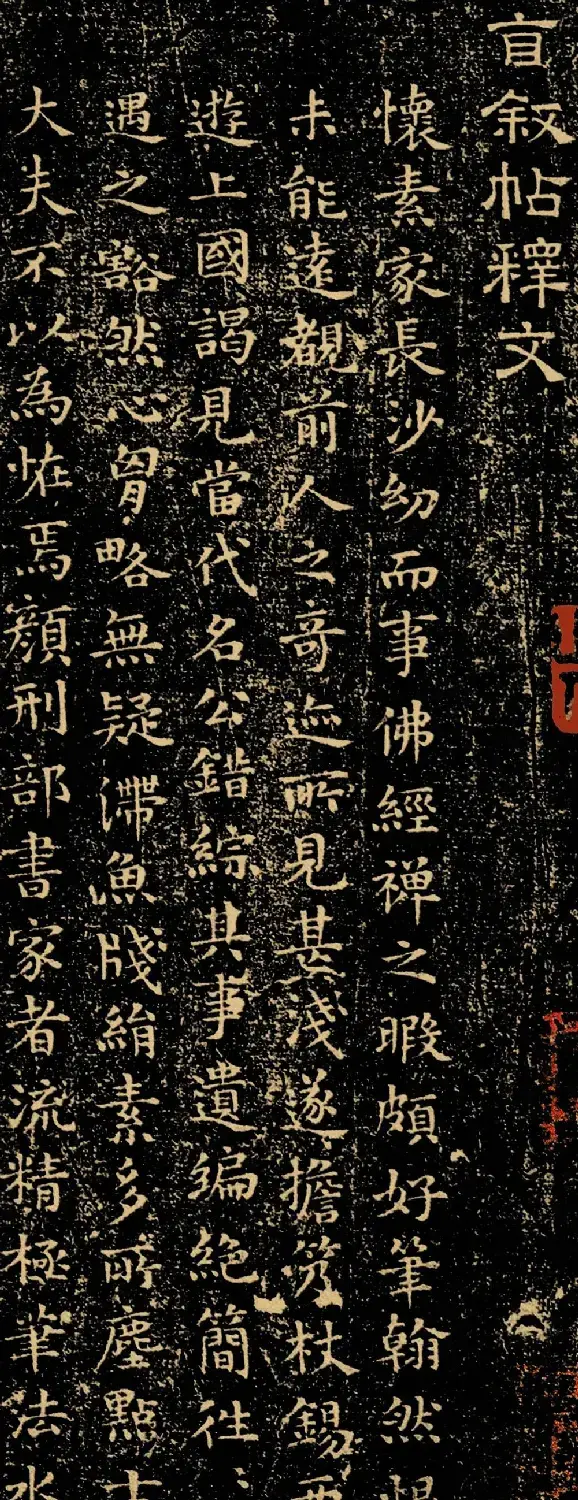 自叙帖釋文
懷素家長沙幼而事佛經禅之暇頗好筆翰然恨
未能遠覩前人之奇迹所見甚淺遂擔笈杖錫西
遊上國謁見當代名公錯綜其事遺編絶簡往〻
遇之豁然心胷略無疑滞魚牋絹素多所塵點士
大夫不以為恠焉顔刑部書家者流精極筆法水